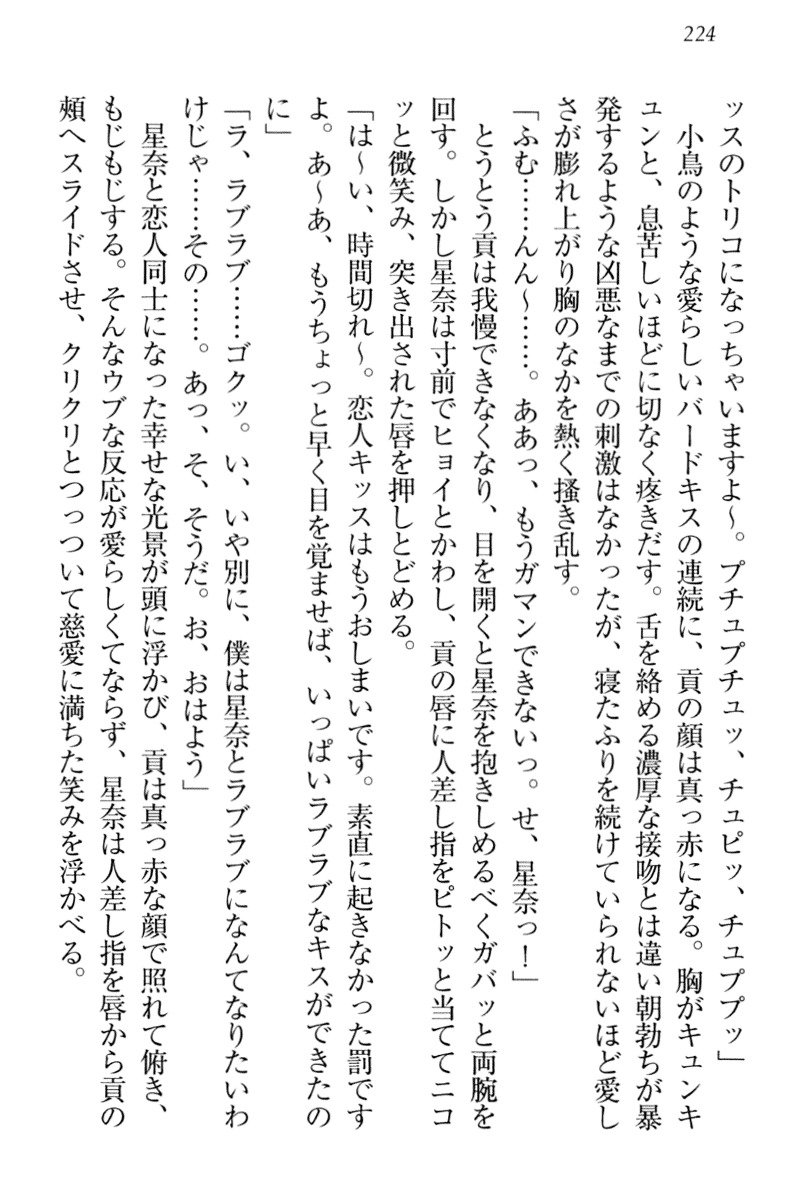 224
ッスのトリコになっちゃいますよ～。プチュプチュッ、チュピッ、チュププッ」
　小鳥のような愛らしいバードキスの連続に、貢の顔は真っ赤になる。胸がキュンキ
ュンと、息苦しいほどに切なく疼きだす。舌を絡める濃厚な接吻とは違い朝勃ちが暴
発するような凶悪なまでの刺激はなかったが、寝たふりを続けていられないほど愛し
さが膨れ上がり胸のなかを熱く掻き乱す。
「ふむ……んん～……。ああっ、もうガマンできないっ。せ、星奈っ！」
　とうとう貢は我慢できなくなり、目を開くと星奈を抱きしめるべくガバッと両腕を
回す。しかし星奈は寸前でヒョイとかわし、貢の唇に人差し指をピトッと当ててニコ
ッと微笑み、突き出された唇を押しとどめる。
「は～い、時間切れ～。恋人キッスはもうおしまいです。素直に起きなかった罰です
よ。あ～あ、もうちょっと早く目を覚ませば、いっぱいラブラブなキスができたの
に」
「ラ、ラブラブ……ゴクッ。い、いや別に、僕は星奈とラブラブになんてなりたいわ
けじゃ……その……。あっ、そ、そうだ。お、おはよう」
　星奈と恋人同士になった幸せな光景が頭に浮かび、貢は真っ赤な顔で照れて俯き、
もじもじする。そんなウブな反応が愛らしくてならず、星奈は人差し指を唇から貢の
頬へスライドさせ、クリクリとつっついて慈愛に満ちた笑みを浮かべる。